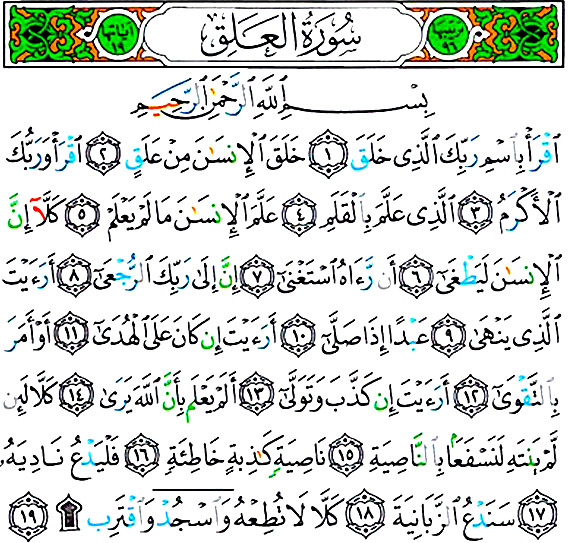 ترتيبها ٩٦ سُورَةُ العَلَقِ آياتها ١٩
بِسْمِ ٱللَّهِ ٱلرَّحْمَٰنِ ٱلرَّحِيمِ
ٱقْرَأْ بِٱسْمِ رَبِّكَ ٱلَّذِى خَلَقَ ١ خَلَقَ ٱلْإِنسَٰنَ مِنْ عَلَقٍ ٢ ٱقْرَأْ وَرَبُّكَ
ٱلْأَكْرَمُ ٣ ٱلَّذِى عَلَّمَ بِٱلْقَلَمِ ٤ عَلَّمَ ٱلْإِنسَٰنَ مَا لَمْ يَعْلَمْ ٥ كَلَّآ إِنَّ
ٱلْإِنسَٰنَ لَيَطْغَىٰٓ ٦ أَن رَّءَاهُ ٱسْتَغْنَىٰٓ ٧ إِنَّ إِلَىٰ رَبِّكَ ٱلرُّجْعَىٰٓ ٨ أَرَءَيْتَ
ٱلَّذِى يَنْهَىٰ ٩ عَبْدًا إِذَا صَلَّىٰٓ ١٠ أَرَءَيْتَ إِن كَانَ عَلَى ٱلْهُدَىٰٓ ١١ أَوْ أَمَرَ
بِٱلتَّقْوَىٰٓ ١٢ أَرَءَيْتَ إِن كَذَّبَ وَتَوَلَّىٰٓ ١٣ أَلَمْ يَعْلَم بِأَنَّ ٱللَّهَ يَرَىٰ ١٤ كَلَّا لَئِن
لَّمْ يَنتَهِ لَنَسْفَعًۢا بِٱلنَّاصِيَةِ ١٥ نَاصِيَةٍ كَٰذِبَةٍ خَاطِئَةٍ ١٦ فَلْيَدْعُ نَادِيَهُۥ
١٧ سَنَدْعُ ٱلزَّبَانِيَةَ ١٨ كَلَّا لَا تُطِعْهُ وَٱسْجُدْ وَٱقْتَرِب ۩ ١٩